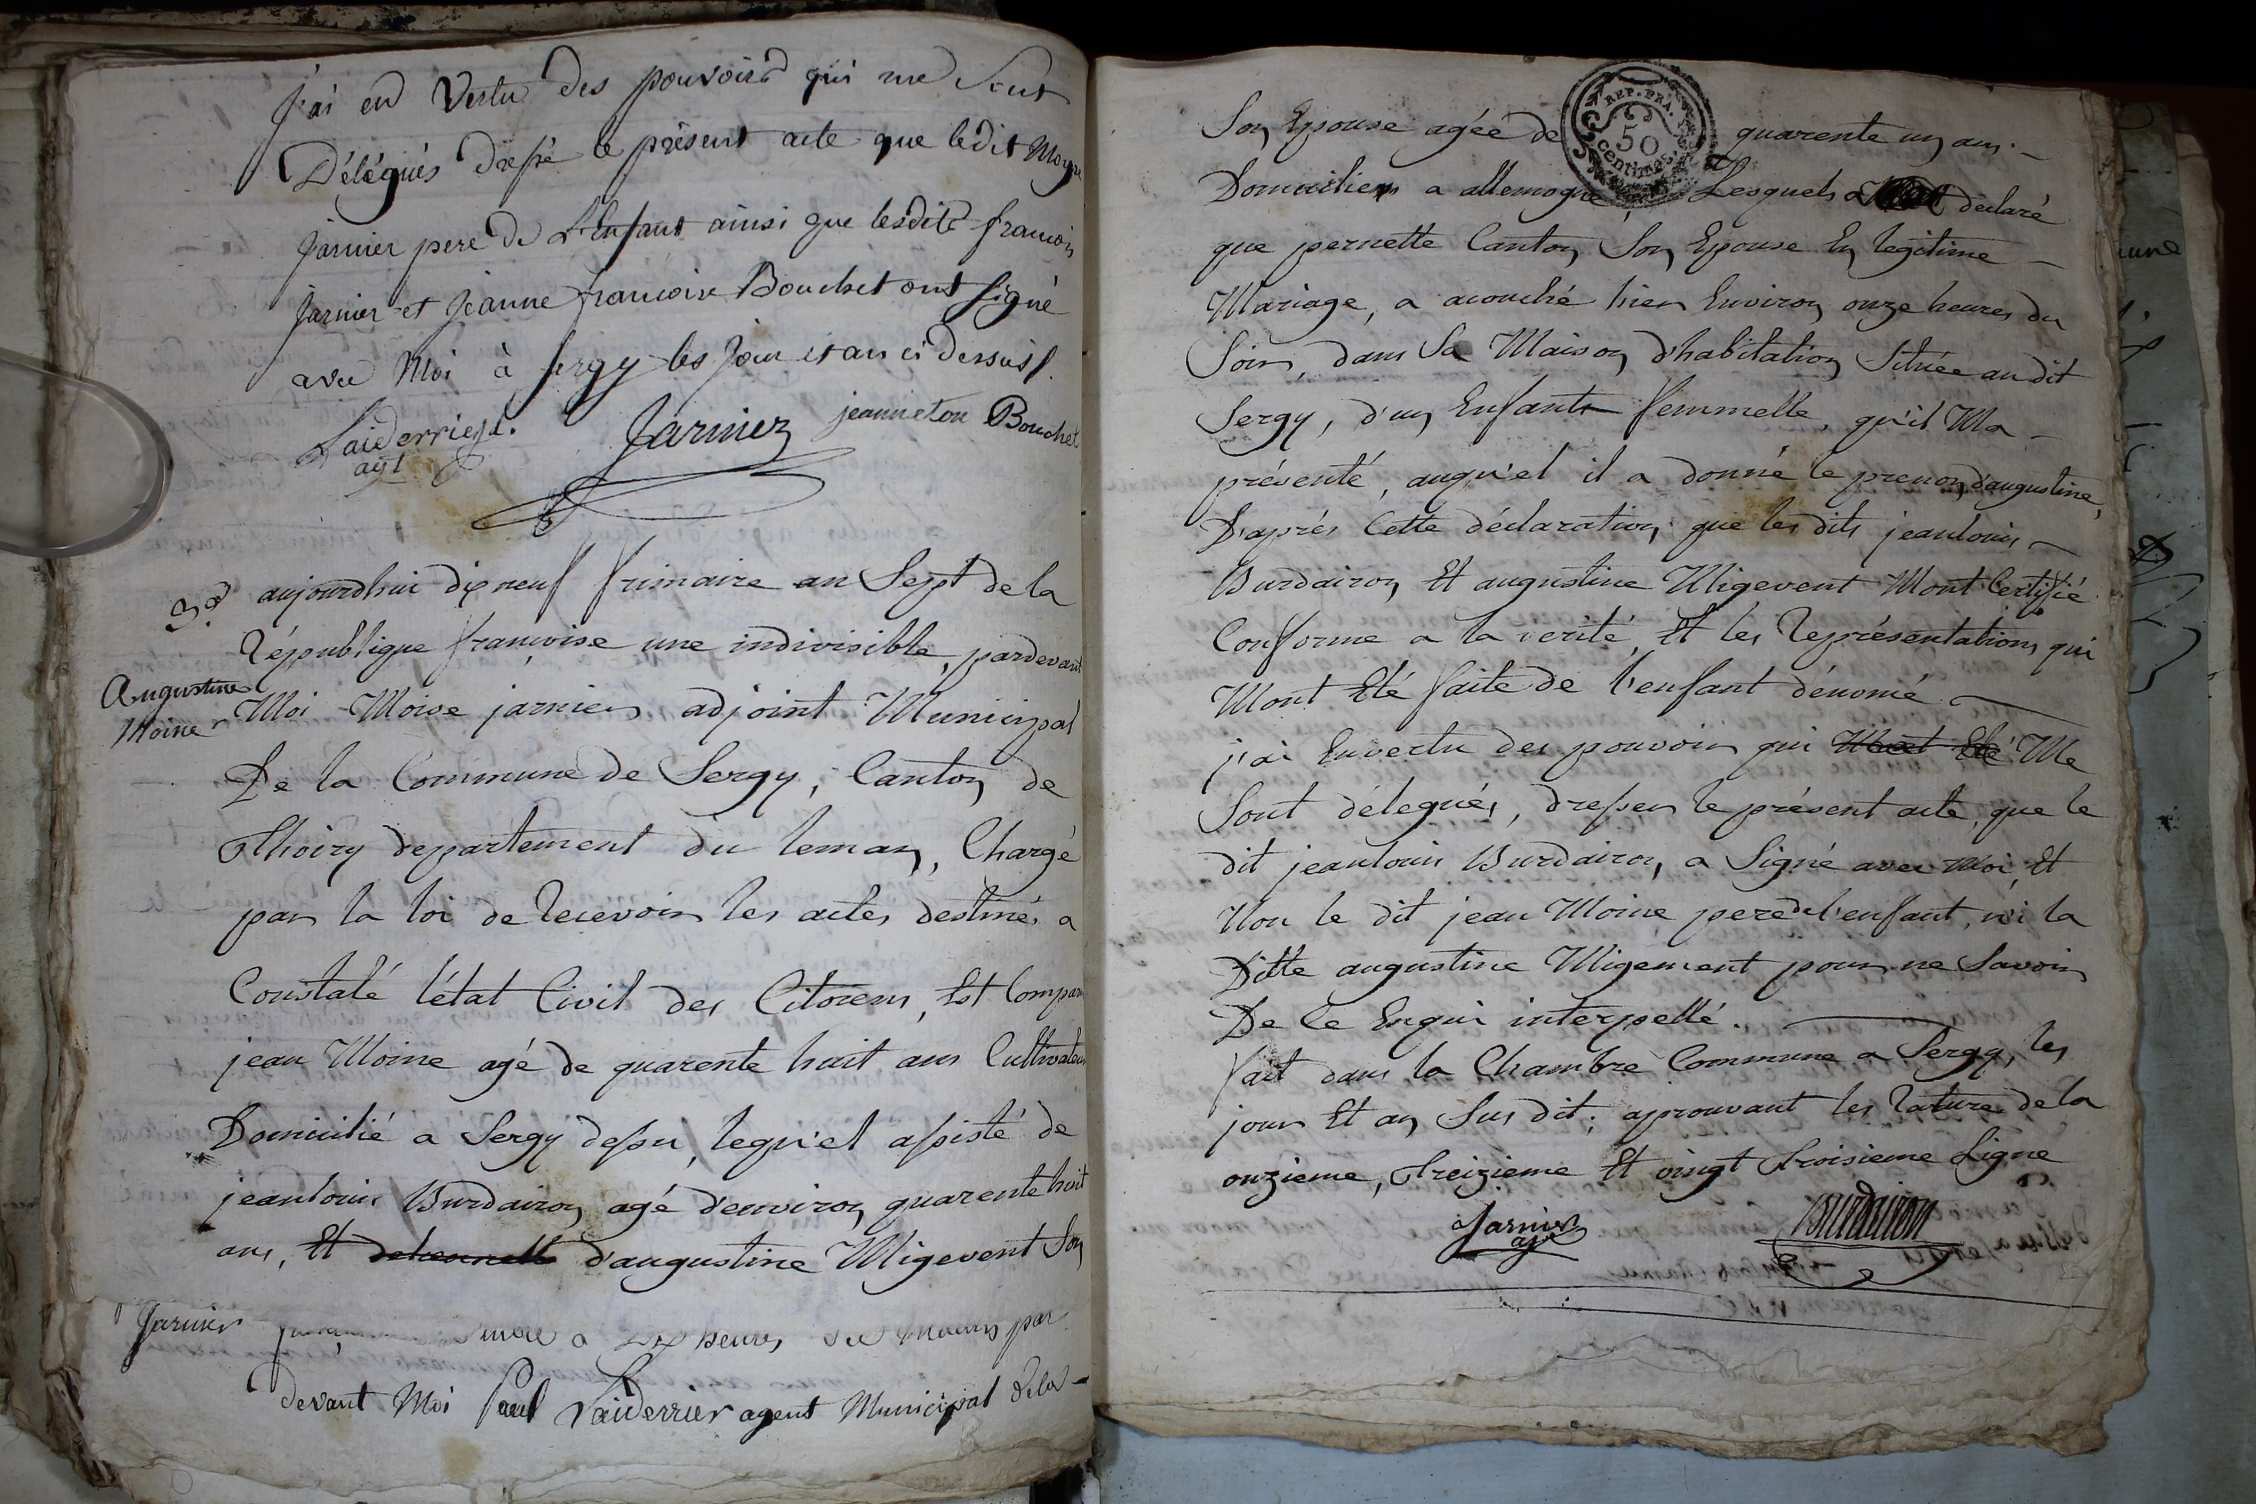 J'ai en Vertu des pouvoirs qui me sont
Délégués dressé le présent acte que ledit Moyse
Jarnier pere de L'Enfant ainsi que lesdits francois
Jarnier et Jeanne francoise Bouchet ont signé
avec Moi à Sergy les Jour et an ci dessus
Laiderrier jeanneton Bouchet
agt Jarnier
3e aujourdhui dix neuf frimaire an Sept de la
République françoise une indivisible, pardevant
Augustine Moi Moise jarnier adjoint Municipal
Moine
De la Commune de Sergy, Canton de
Thoiry departement du leman, Chargé
par la loi de Recevoir les actes destinés a
Constaté l'état Civil des Citoiens, Est Comparu
jean Moine agé de quarente huit ans Cultivateur
Domicilié a Sergy dessu, lequ'el assisté de
jeanlouis Burdairon agé d'environ quarente huit
ans, Et d'augustine Migevent Son
Jarnier a dix heures du Matin par
devant Moi Paul Laiderrier agent Municipal dela
REP. FRA.
50
centimes
Son Epouse agée de quarente un ans.
Domiciliers a allemogne, Lesquels a declaré
que pernette Canton Son Epouse En legitime
Mariage, a acouché hier Environ onze heures du
Soir, dans Sa Maison d'habitation Située au dit
Sergy, d'un Enfant femmelle, qu'il Ma
présenté, auqu'el il a donné le prenon d'augustine,
D'après Cette déclaration que les dits jeanlouis
Burdairon Et augustine Migevent Mont Certifié
Conforme a la verité, Et les Représentations qui
Mont Eté faite de l'enfant dénomé
j'ai Envertu des pouvoirs qui Mont Eté Me
Sont délegués, dresser le présent acte, que le
dit jeanlouis Burdairon a Signé avec Moi, Et
Non le dit jean Moine pere de l'enfant, ni la
Ditte augustine Migement pour ne Savoir
De ce Enqui interpellé.
fait dans la Chambre Commune a Sergy, les
jour Et an Sus dit; aprouvant les Rature de la
onzieme, Treizieme Et vingt Troisieme Ligne
Jarnier Burdairon